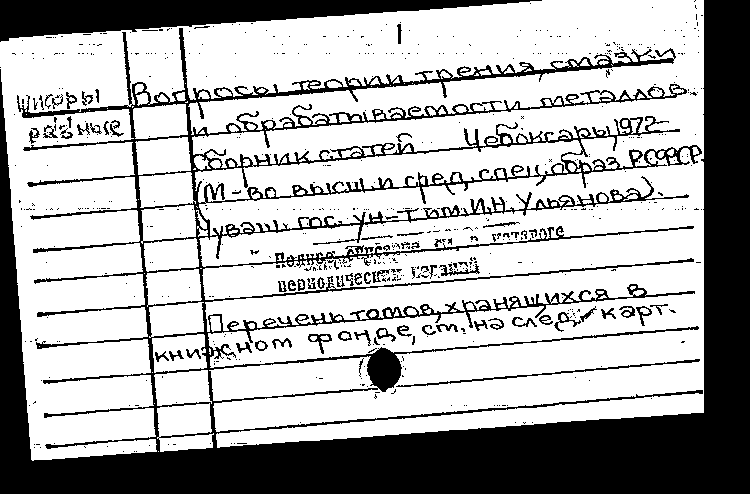 1
Шифры
разные
Вопросы теории трения, смазки
и обрабатываемости металлов.
Сборник статей Чебоксары, 1972
(М-во высш. и сред. спец. образ. РСФСР.
Чуваш. гос. ун-т им. И.Н. Ульянова).
Полное описание см. в каталоге
периодических изданий
Перечень томов, хранящихся в
книжном фонде, см. на след. карт.